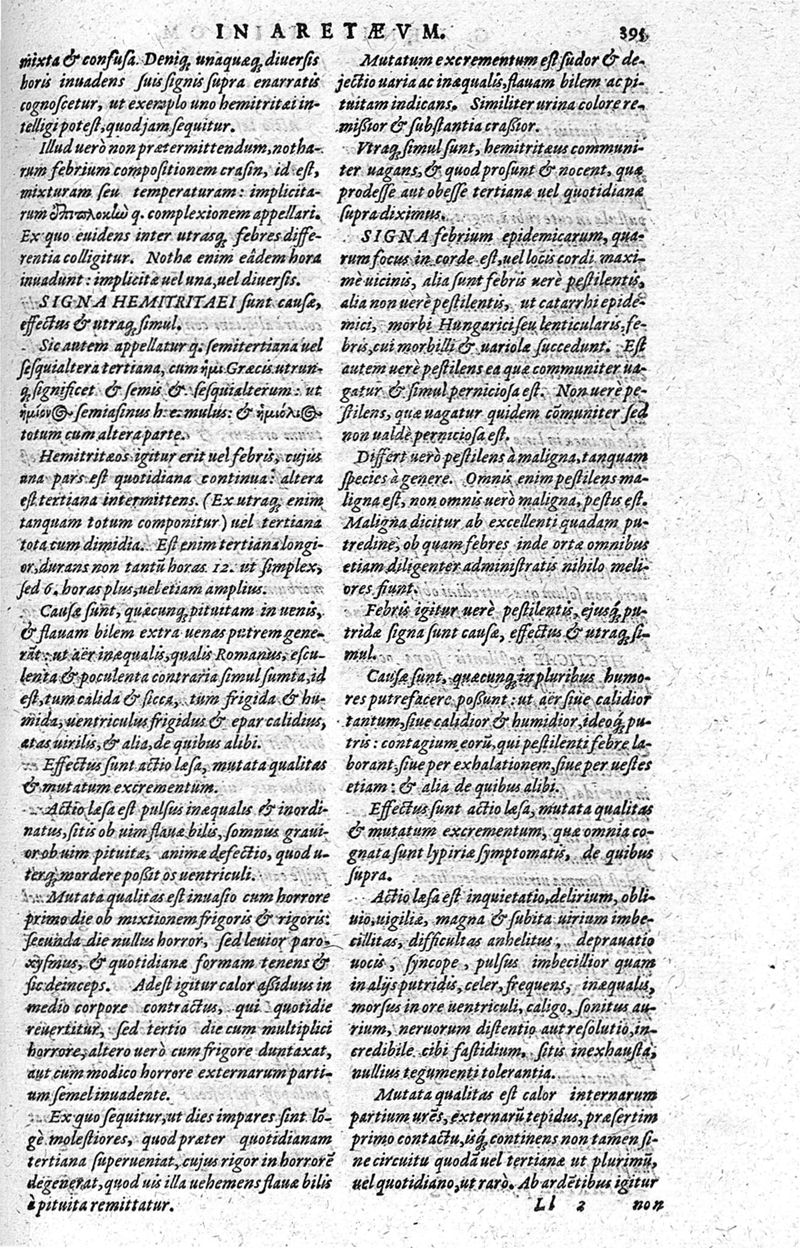 IN ARETÆVM. 395
mixta & confusa. Deniq; unaquæq; diversis
horis invadens suis signis supra enarratis
cognoscetur, ut exemplo uno hemitritæi in-
telligi potest, quod jam sequitur.
Illud verò non prætermittendum, notha-
rum febrium compositionem crasin, id est,
mixturam seu temperaturam: implicita-
rum ἐπιπλοκὼ q. complexionem appellari.
Ex quo evidens inter utrasq; febres diffe-
rentia colligitur. Nothæ enim eâdem hora
invadunt: implicitæ vel una, vel diversis.
SIGNA HEMITRITAEI sunt causæ,
effectus & utraq; simul.
Sic autem appellatur q. semitertiana vel
sesquialtera tertiana, cum ἡμι Græcis utrun-
q; significet & semis & sesquialterum: ut
ἡμίονος semiasinus h. e. mulus: & ἡμιόλιος
totum cum altera parte.
Hemitritæos igitur erit vel febris, cujus
una pars est quotidiana continua: altera
est tertiana intermittens. (Ex utraq; enim
tanquam totum componitur) vel tertiana
tota cum dimidia. Est enim tertiana longi-
or, durans non tantũ horas 12. ut simplex,
sed 6. horas plus, vel etiam amplius.
Causæ sunt, quæcunq; pituitam in venis,
& flavam bilem extra venas putrem gene-
rãt: ut aër inæqualis, qualis Romanus, escu-
lenta & poculenta contraria simul sumta, id
est, tum calida & sicca, tum frigida & hu-
mida, ventriculus frigidus & epar calidius,
ætas virilis, & alia, de quibus alibi.
Effectus sunt actio læsa, mutata qualitas
& mutatum excrementum.
Actio læsa est pulsus inæqualis & inordi-
natus, sitis ob vim flavæ bilis, somnus gravi-
or ob vim pituitæ, animæ defectio, quod u-
terq; mordere possit os ventriculi.
Mutata qualitas est invasio cum horrore
primo die ob mixtionem frigoris & rigoris:
secunda die nullus horror, sed levior paro-
xysmus, & quotidianæ formam tenens &
sic deinceps. Adest igitur calor assiduus in
medio corpore contractus, qui quotidie
revertitur, sed tertio die cum multiplici
horrore, altero verò cum frigore duntaxat,
aut cum modico horrore externarum parti-
um semel invadente.
Ex quo sequitur, ut dies impares sint lõ-
gè molestiores, quod præter quotidianam
tertiana superveniat, cujus rigor in horrorẽ
degenerat, quod vis illa vehemens flavæ bilis
è pituita remittatur.
Mutatum excrementum est sudor & de-
jectio varia ac inæqualis, flavam bilem ac pi-
tuitam indicans. Similiter urina colore re-
missior & substantia crassior.
Vtraq; simul sunt, hemitritæus communi-
ter vagans, & quod prosunt & nocent, quæ
prodesse aut obesse tertianæ vel quotidianæ
supra diximus.
SIGNA febrium epidemicarum, qua-
rum focus in corde est, vel locis cordi maxi-
mè vicinis, alia sunt febris verè pestilentis,
alia non verè pestilentis, ut catarrhi epide-
mici, morbi Hungarici seu lenticularis, fe-
bris, cui morbilli & variolæ succedunt. Est
autem verè pestilens ea quæ communiter va-
gatur & simul perniciosa est. Non verè pe-
stilens, quæ vagatur quidem cõmuniter sed
non valdè perniciosa est.
Differt verò pestilens à maligna, tanquam
species à genere. Omnis enim pestilens ma-
ligna est, non omnis verò maligna, pestis est.
Maligna dicitur ab excellenti quadam pu-
tredine, ob quam febres inde ortæ omnibus
etiam diligenter administratis nihilo meli-
ores fiunt.
Febris igitur verè pestilentis, ejusq; pu-
tridæ signa sunt causæ, effectus & utraq; si-
mul.
Causæ sunt, quæcunq; in pluribus humo-
res putrefacere possunt: ut aër sive calidior
tantum, sive calidior & humidior, ideoq; pu-
tris: contagium eorũ, qui pestilenti febre la-
borant, sive per exhalationem, sive per vestes
etiam: & alia de quibus alibi.
Effectus sunt actio læsa, mutata qualitas
& mutatum excrementum, quæ omnia co-
gnata sunt lypiriæ symptomatis, de quibus
supra.
Actio læsa est inquietatio, delirium, obli-
vio, vigiliæ, magna & subita virium imbe-
cillitas, difficultas anhelitus, depravatio
vocis, syncope, pulsus imbecillior quam
in alijs putridis, celer, frequens, inæqualis,
morsus in ore ventriculi, caligo, sonitus au-
rium, nervorum distentio aut resolutio, in-
credibile cibi fastidium, sitis inexhausta,
nullius tegumenti tolerantia.
Mutata qualitas est calor internarum
partium urẽs, externarũ tepidus, præsertim
primo contactu, isq; continens non tamen si-
ne circuitu quodã vel tertianæ ut plurimũ,
vel quotidiano, ut rarò. Ab ardẽtibus igitur
Ll 2 non